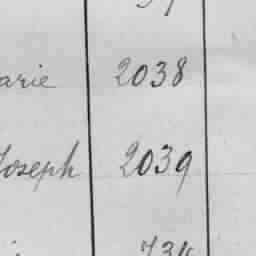 arie 2038
Joseph 2039